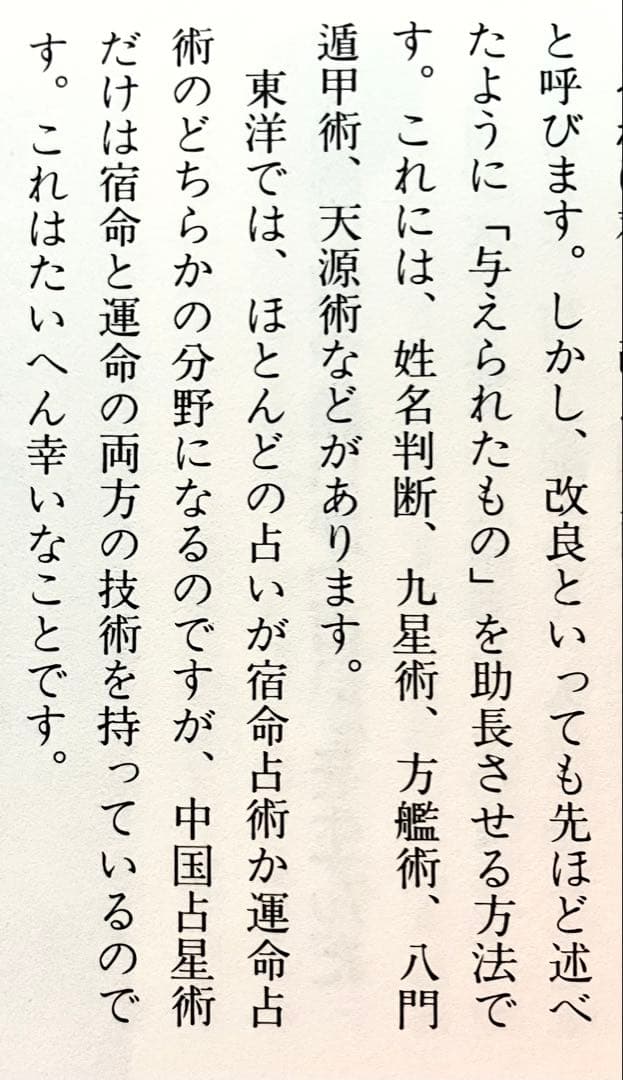 と呼びます。しかし、改良といっても先ほど述べ
たように「与えられたもの」を助長させる方法で
す。これには、姓名判断、九星術、方艦術、八門
遁甲術、天源術などがあります。
東洋では、ほとんどの占いが宿命占術か運命占
術のどちらかの分野になるのですが、中国占星術
だけは宿命と運命の両方の技術を持っているので
す。これはたいへん幸いなことです。